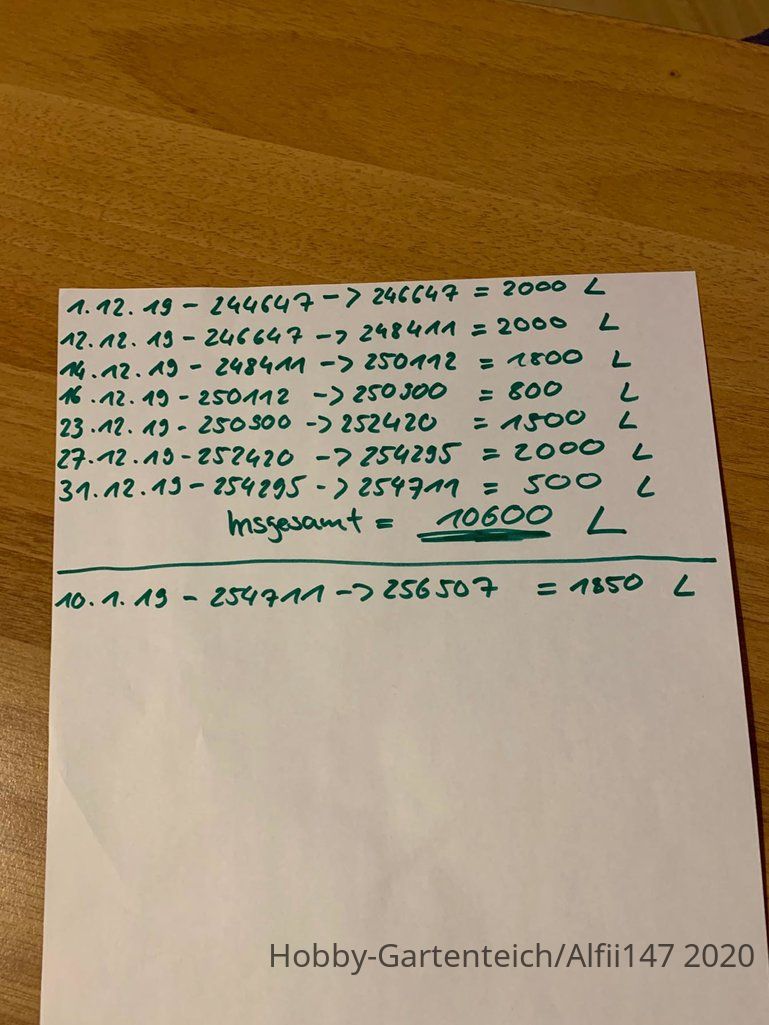 1.12.19 - 244647 -> 246647 = 2000 L
12.12.19 - 246647 -> 248411 = 2000 L
14.12.19 - 248411 -> 250112 = 1800 L
16.12.19 - 250112 -> 250900 = 800 L
23.12.19 - 250900 -> 252420 = 1500 L
27.12.19 - 252420 -> 254295 = 2000 L
31.12.19 - 254295 -> 254711 = 500 L
Insgesamt = 10600 L
10.1.19 - 254711 -> 256507 = 1850 L
Hobby-Gartenteich/Alfii147 2020